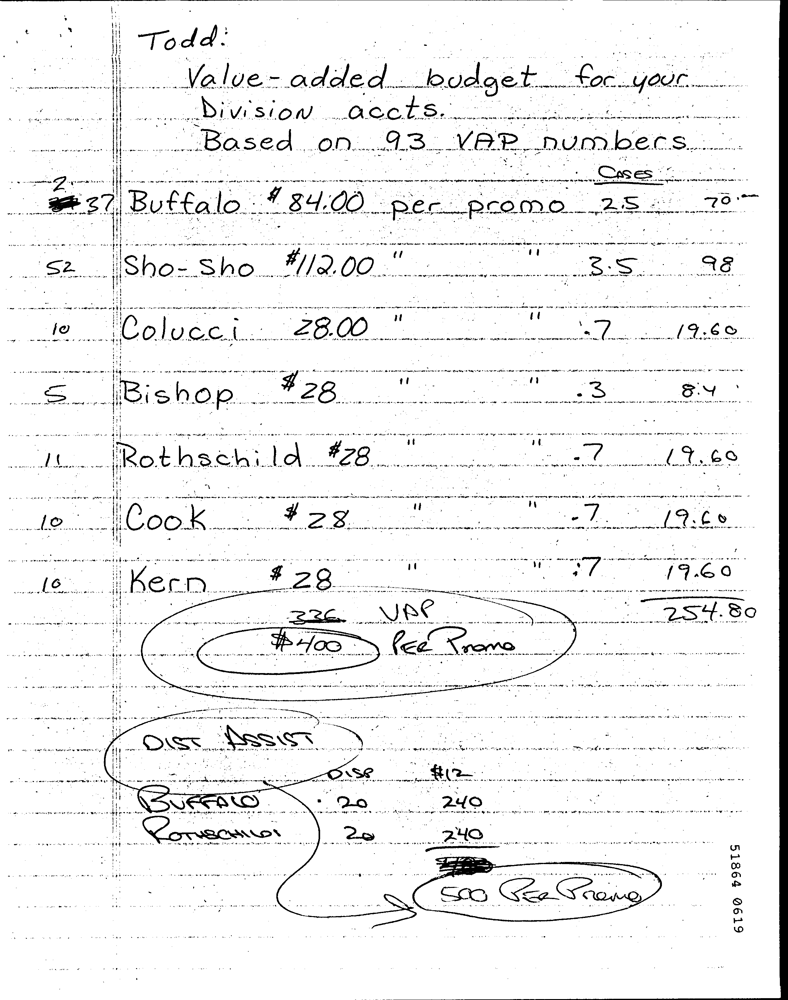 Todd:
Value-added budget for your
Division accts.
Based on 93 VAP numbers
Cases
2
37 Buffalo $84.00 per promo 2.5 70.—
52 Sho-Sho $112.00 " " 3.5 98
10 Colucci 28.00 " " .7 19.60
5 Bishop $28 " " .3 8.4
11 Rothschild #28 " " .7 19.60
10 Cook $28 " " .7 19.60
10 Kern $28 " " .7 19.60
336 VAP 254.80
$400 Per Promo
DIST ASSIST
DISP $12
BUFFALO 20 240
ROTHSCHILD 20 240
500 Per Promo
51864 0619